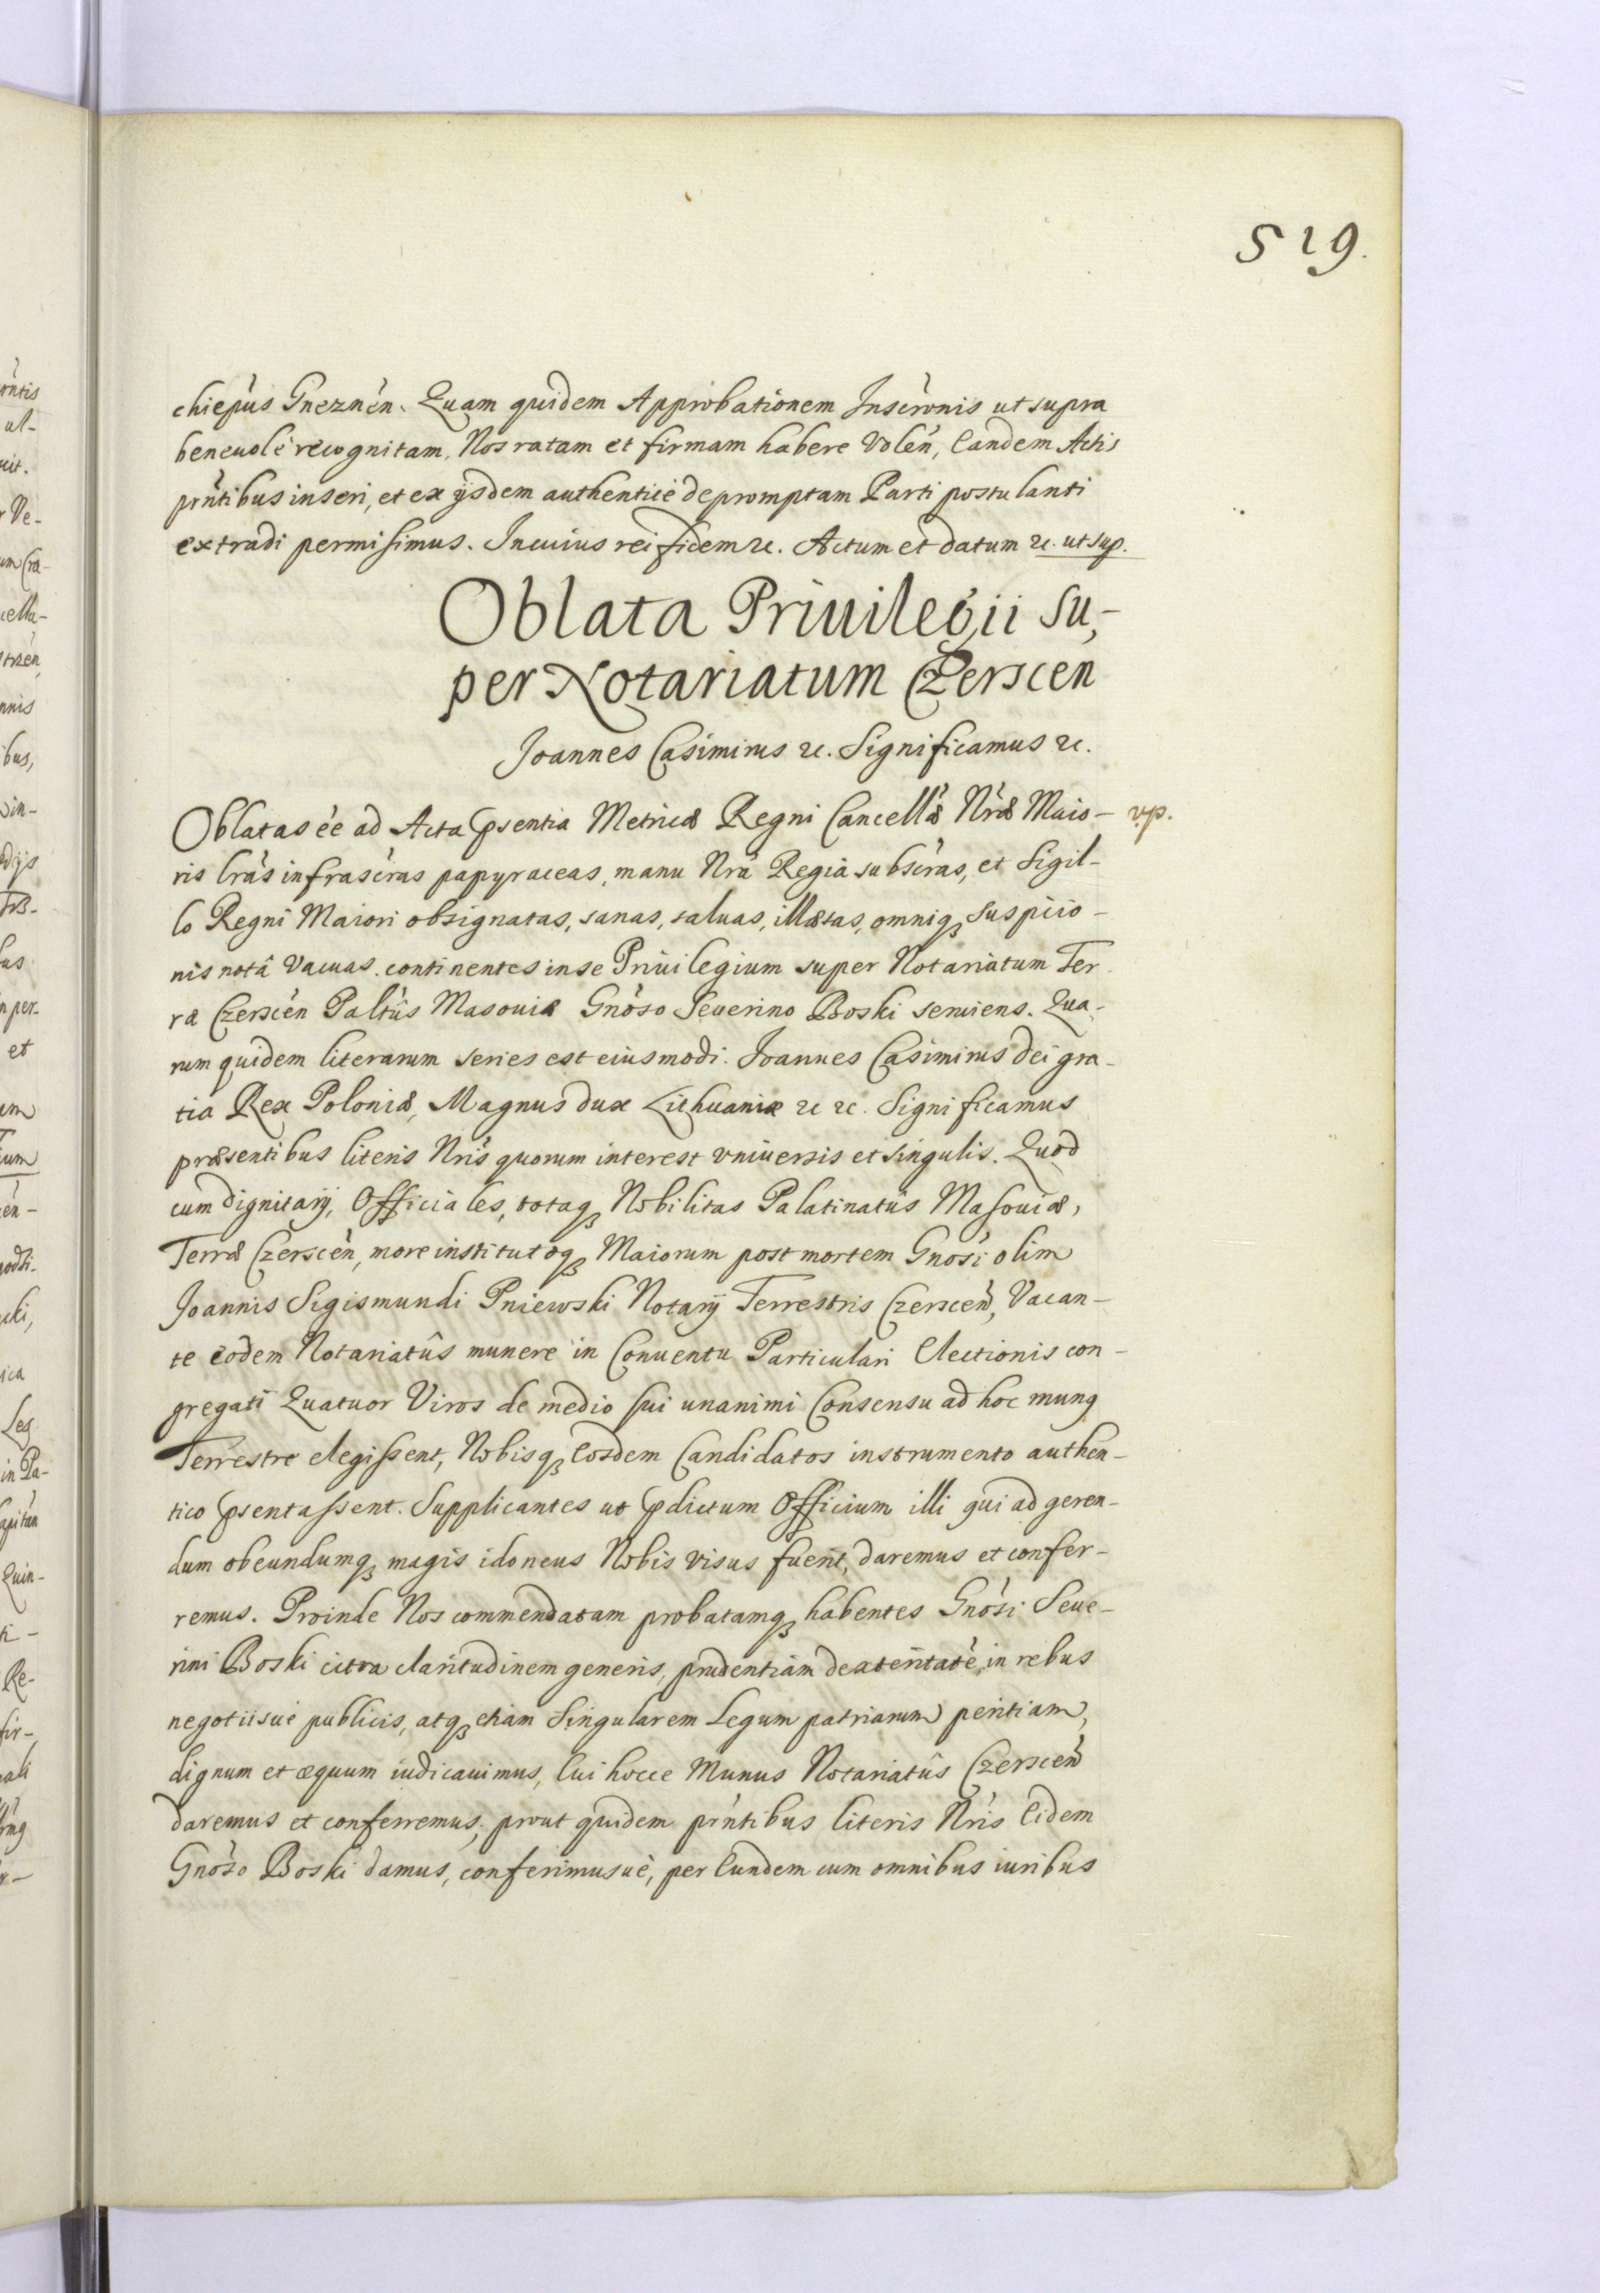 519.
chiepus Gneznen. Quam quidem Approbationem Inscronis ut supra
beneuolè recognitam, Nos ratam et firmam habere Volen, Eandem Actis
prntibus inseri, et ex ijsdem authenticè depromptam Parti postulanti
extradi permisimus. In cuius rei fidem &c. Actum et datum &c. ut sup.
Oblata Priuilegii Su,-
per Notariatum Czerscen
Joannes Casimirus &c. Significamus &c.
Oblatas ée ad Acta psentia Metricæ Regni Cancellæ Nræ Maio- vp.
ris lras infrascras papyraceas, manu Nra Regia subscras, et Sigil-
lo Regni Maiori obsignatas, sanas, saluas, illæsas, omniq suspicio-
nis notâ Vacuas. continentes in se Priuilegium super Notariatum Ter-
ræ Czerscen Paltus Masouiæ Gnoso Seuerino Boski seruiens. Qua-
rum quidem literarum series est eiusmodi. Joannes Casimirus dei gra-
tia Rex Poloniæ, Magnus dux Lithuaniæ &c &c. Significamus
præsentibus literis Nris quorum interest vniuersis et singulis. Quod
cum dignitarij, Officiales, totaq Nobilitas Palatinatus Masouiæ,
Terræ Czerscen, more institutoq Maiorum post mortem Gnosi olim
Joannis Sigismundi Pniewski Notarij Terrestris Czerscen, Vacan-
te eodem Notariatûs munere in Conuentu Particulari Electionis con-
gregati Quatuor Viros de medio sui unanimi Consensu ad hoc mung
Terrestre elegissent, Nobisq Eosdem Candidatos instrumento authen-
tico psentassent. Supplicantes ut pdictum Officium illi qui ad geren-
dum obeundumq magis idoneus Nobis visus fuerit, daremus et confer-
remus. Proinde Nos commendatam probatamq habentes Gnosi Seue-
rini Boski citra claritudinem generis, prudentiam dexteritatè, in rebus
negotiisuè publicis, atq etiam Singularem Legum patriarum peritiam,
dignum et æquum iudicauimus, Cui hocce Munus Notariatûs Czerscen
daremus et conferremus, prout quidem prntibus literis Nris Eidem
Gnoso Boski damus, conferimusuè, per Eundem cum omnibus iuribus